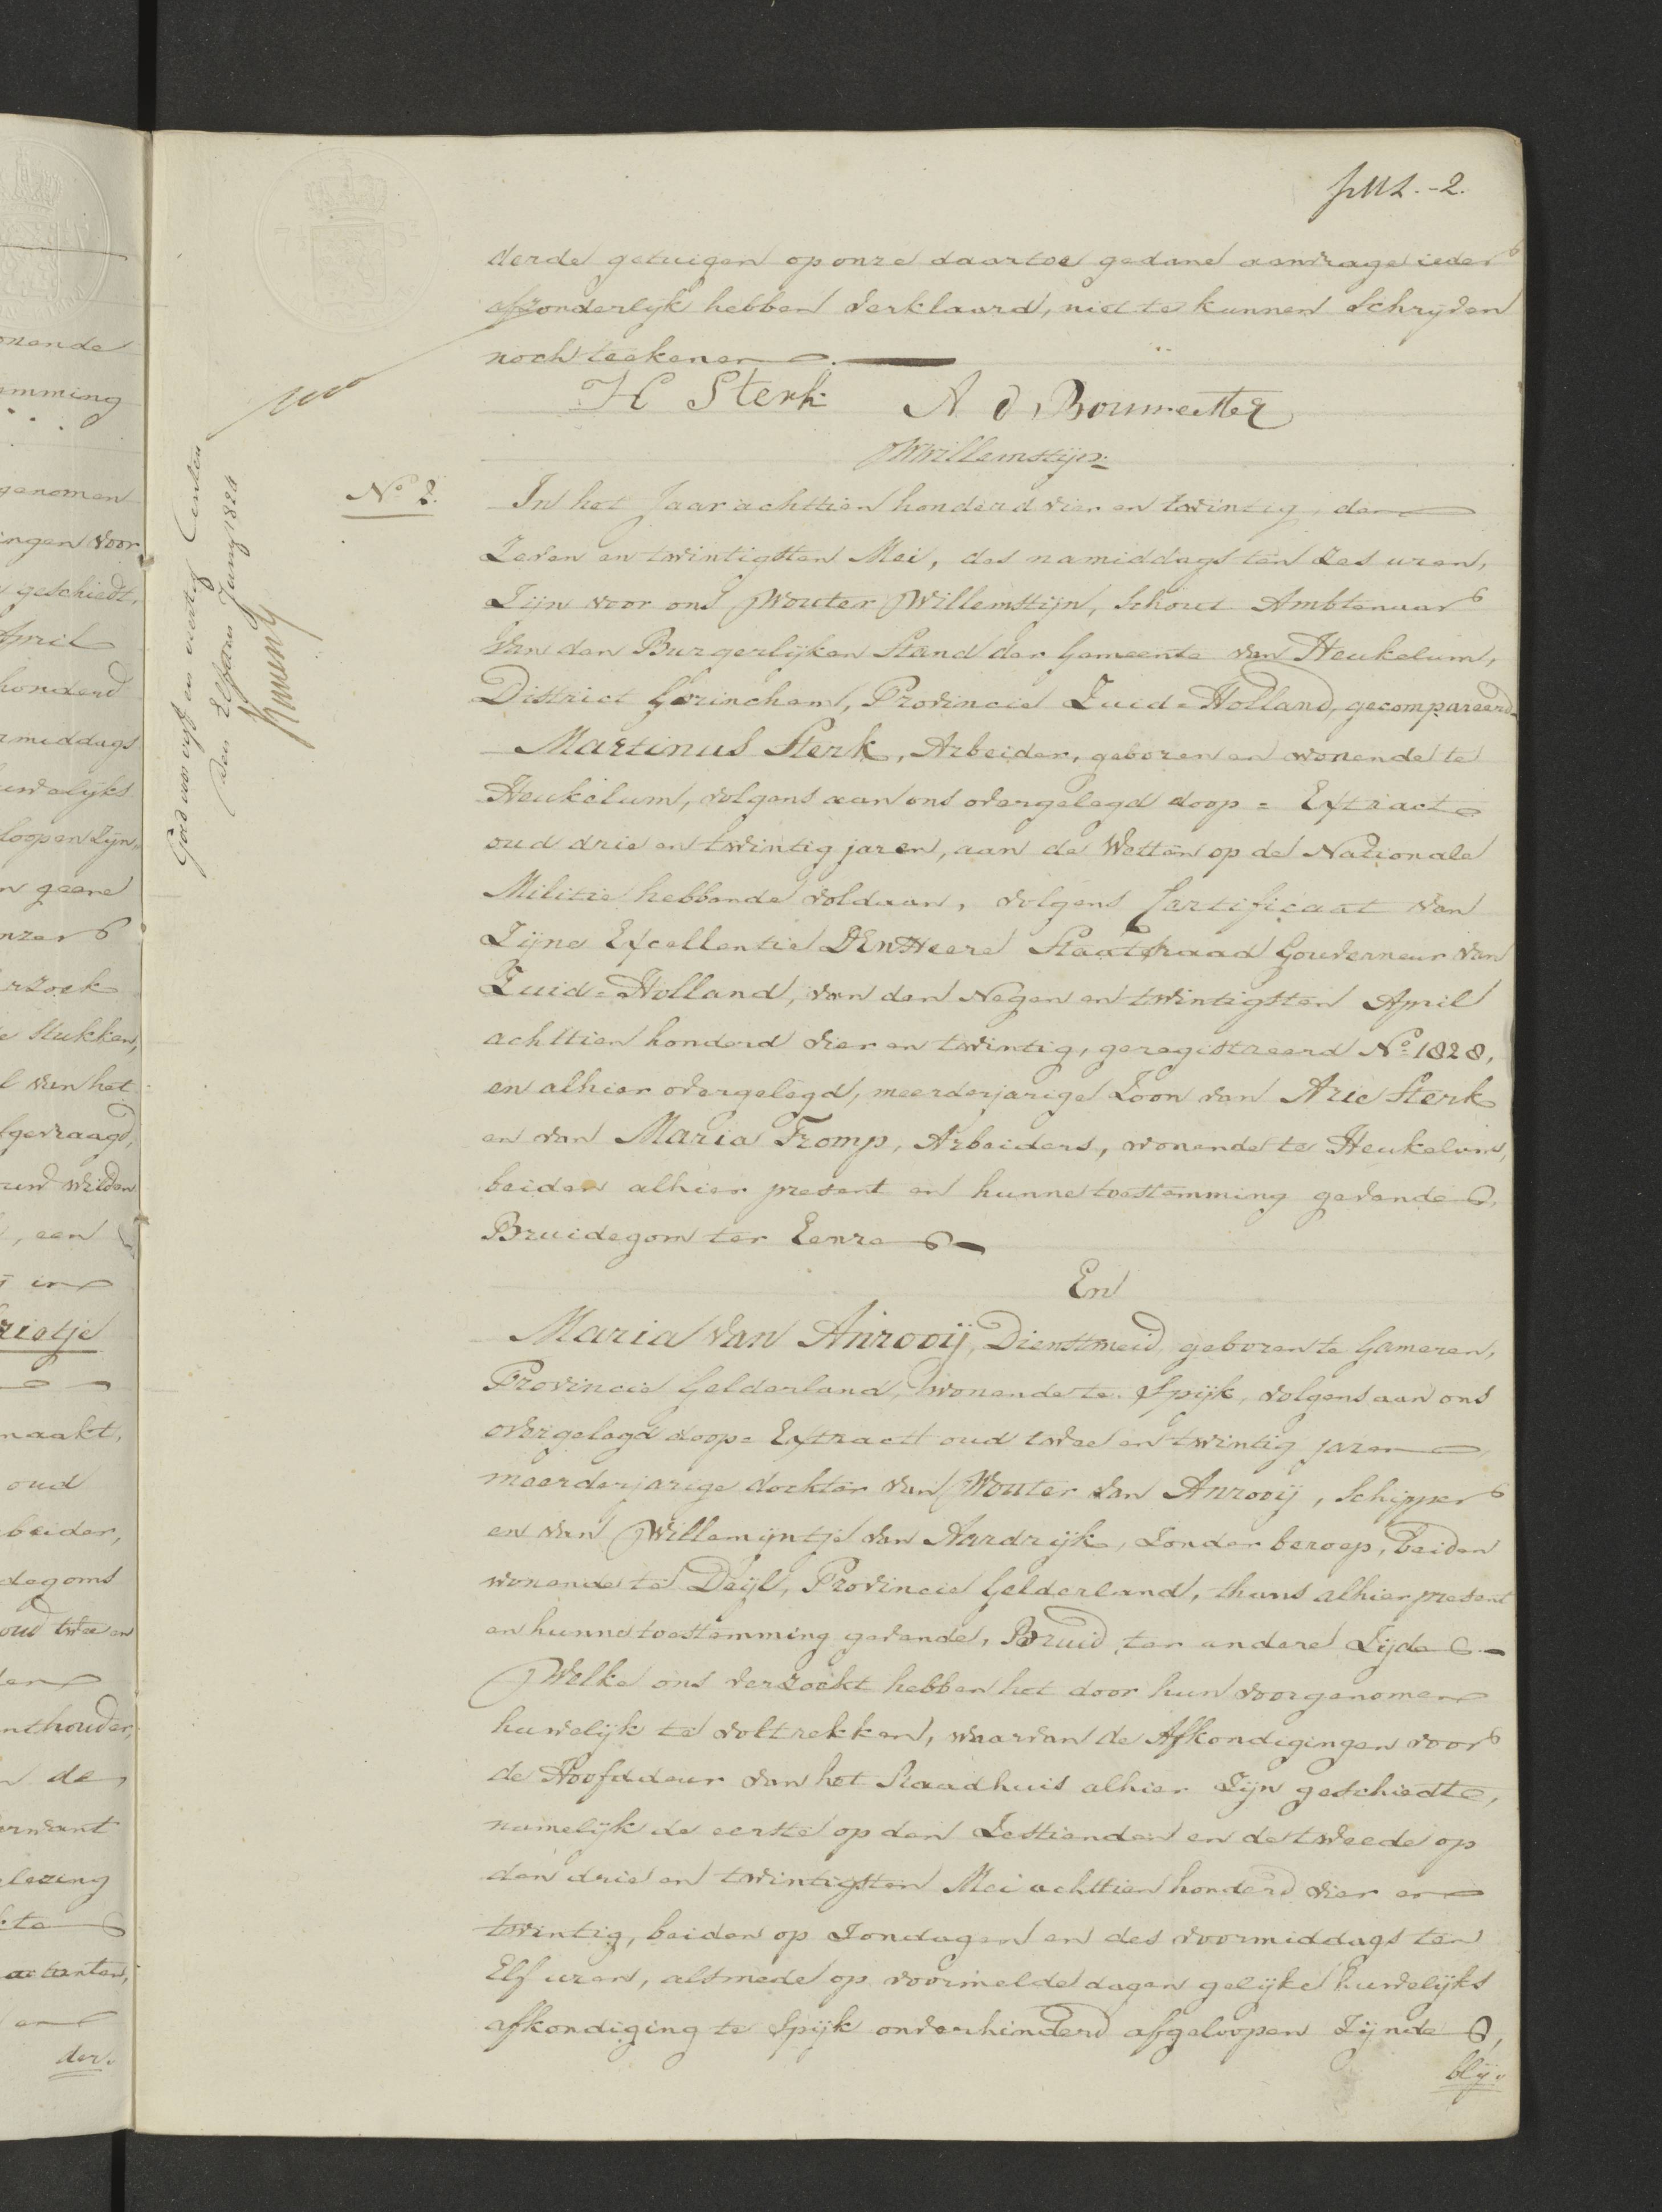 2.
derde getuigen op onze daartoe gedane aanvrage ieder
afzonderlyk hebben verklaard, niet te kunnen schryven
noch teekenen.
H Sterk A d Boumeester
WWillemstijn
No 2.
In het Jaar achttien honderd vier en twintig, den
Zeven en twintigsten Mei, des namiddags ten zes uren,
Zijn voor ons Wouter Willemstijn, Schout Ambtenaar
van den Burgerlijken Stand der Gemeente van Heukelum,
District Gorinchem, Provincie Zuid-Holland, gecompareerd
Martinus Sterk, Arbeider, geboren en wonende te
Heukelum, volgens aan ons overgelegd doop = Extract
oud drie en twintig jaren, aan de Wetten op de Nationale
Militie hebbende voldaan, volgens Certificaat van
Zijne Excellentie Den Heere Staatsraad Gouverneur van
Zuid=Holland, van den Negen en twintigsten April
achttien honderd vier en twintig, geregistreerd No 1828,
en alhier overgelegd, meerderjarige Zoon van Arie Sterk
en van Maria Tromp, Arbeiders, wonende te Heukelum,
beiden alhier present en hunne toestemming gevende,
Bruidegom ter Eenre
En
Maria van Anrooij, Dienstmeid, geboren te Gameren,
Provincie Gelderland, wonende te Spijk, volgens aan ons
overgelegd doop= Extract oud twee en twintig jaren
meerderjarige dochter van Wouter van Anrooij, Schipper
en van Willemijntje van Aardrijk, zonder beroep, beiden
wonende te Deijl, Provincie Gelderland, thans alhier present
en hunne toestemming gevende, Bruid ter andere Zijde
Welke ons verzocht hebben het door hun voorgenomen
huwelijk te voltrekken, waarvan de Afkondigingen voor
de Hoofddeur van het Raadhuis alhier Zijn geschiedt,
namelijk de eerste op den Zestienden en de tweede op
den drie en twintigsten Mei achttien honderd vier en
twintig, beiden op Zondagen en des voormiddags ten
Elf uren, alsmede op voormelde dagen gelijke huwelijks
afkondiging te Spijk onverhinderd afgeloopen Zijnde,
blij
Goed voor vijf en veertig Centen
den Elfden Junij 1824
onende
emming
genomen
ingen voor
geschiedt,
April
honderd
rmiddags
uwelijks
loopen zijn,
n geene
nzer
rzoek
e stukken,
l van het
fgevraagd,
, een
in
rietje
maakt,
oud
beider,
degoms
oud twee en
nthouder,
de
lezing
en
der.